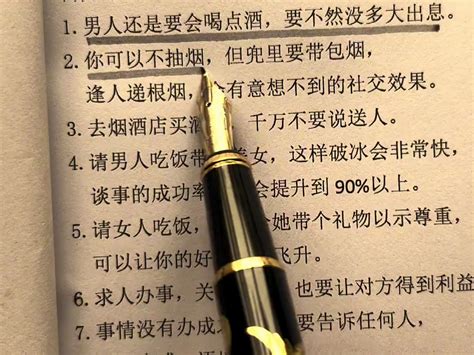 1. 男人还是要会喝点酒，要不然没多大出息。
2. 你可以不抽烟，但兜里要带包烟，
逢人递根烟，有意想不到的社交效果。
3. 去烟酒店买 千万不要说送人。
4. 请男人吃饭带 女，这样破冰会非常快，
谈事的成功率 会提升到 90%以上。
5. 请女人吃饭， 她带个礼物以示尊重，
可以让你的好 飞升。
6. 求人办事，关 也要让对方得到利益
7. 事情没有办成 要告诉任何人，